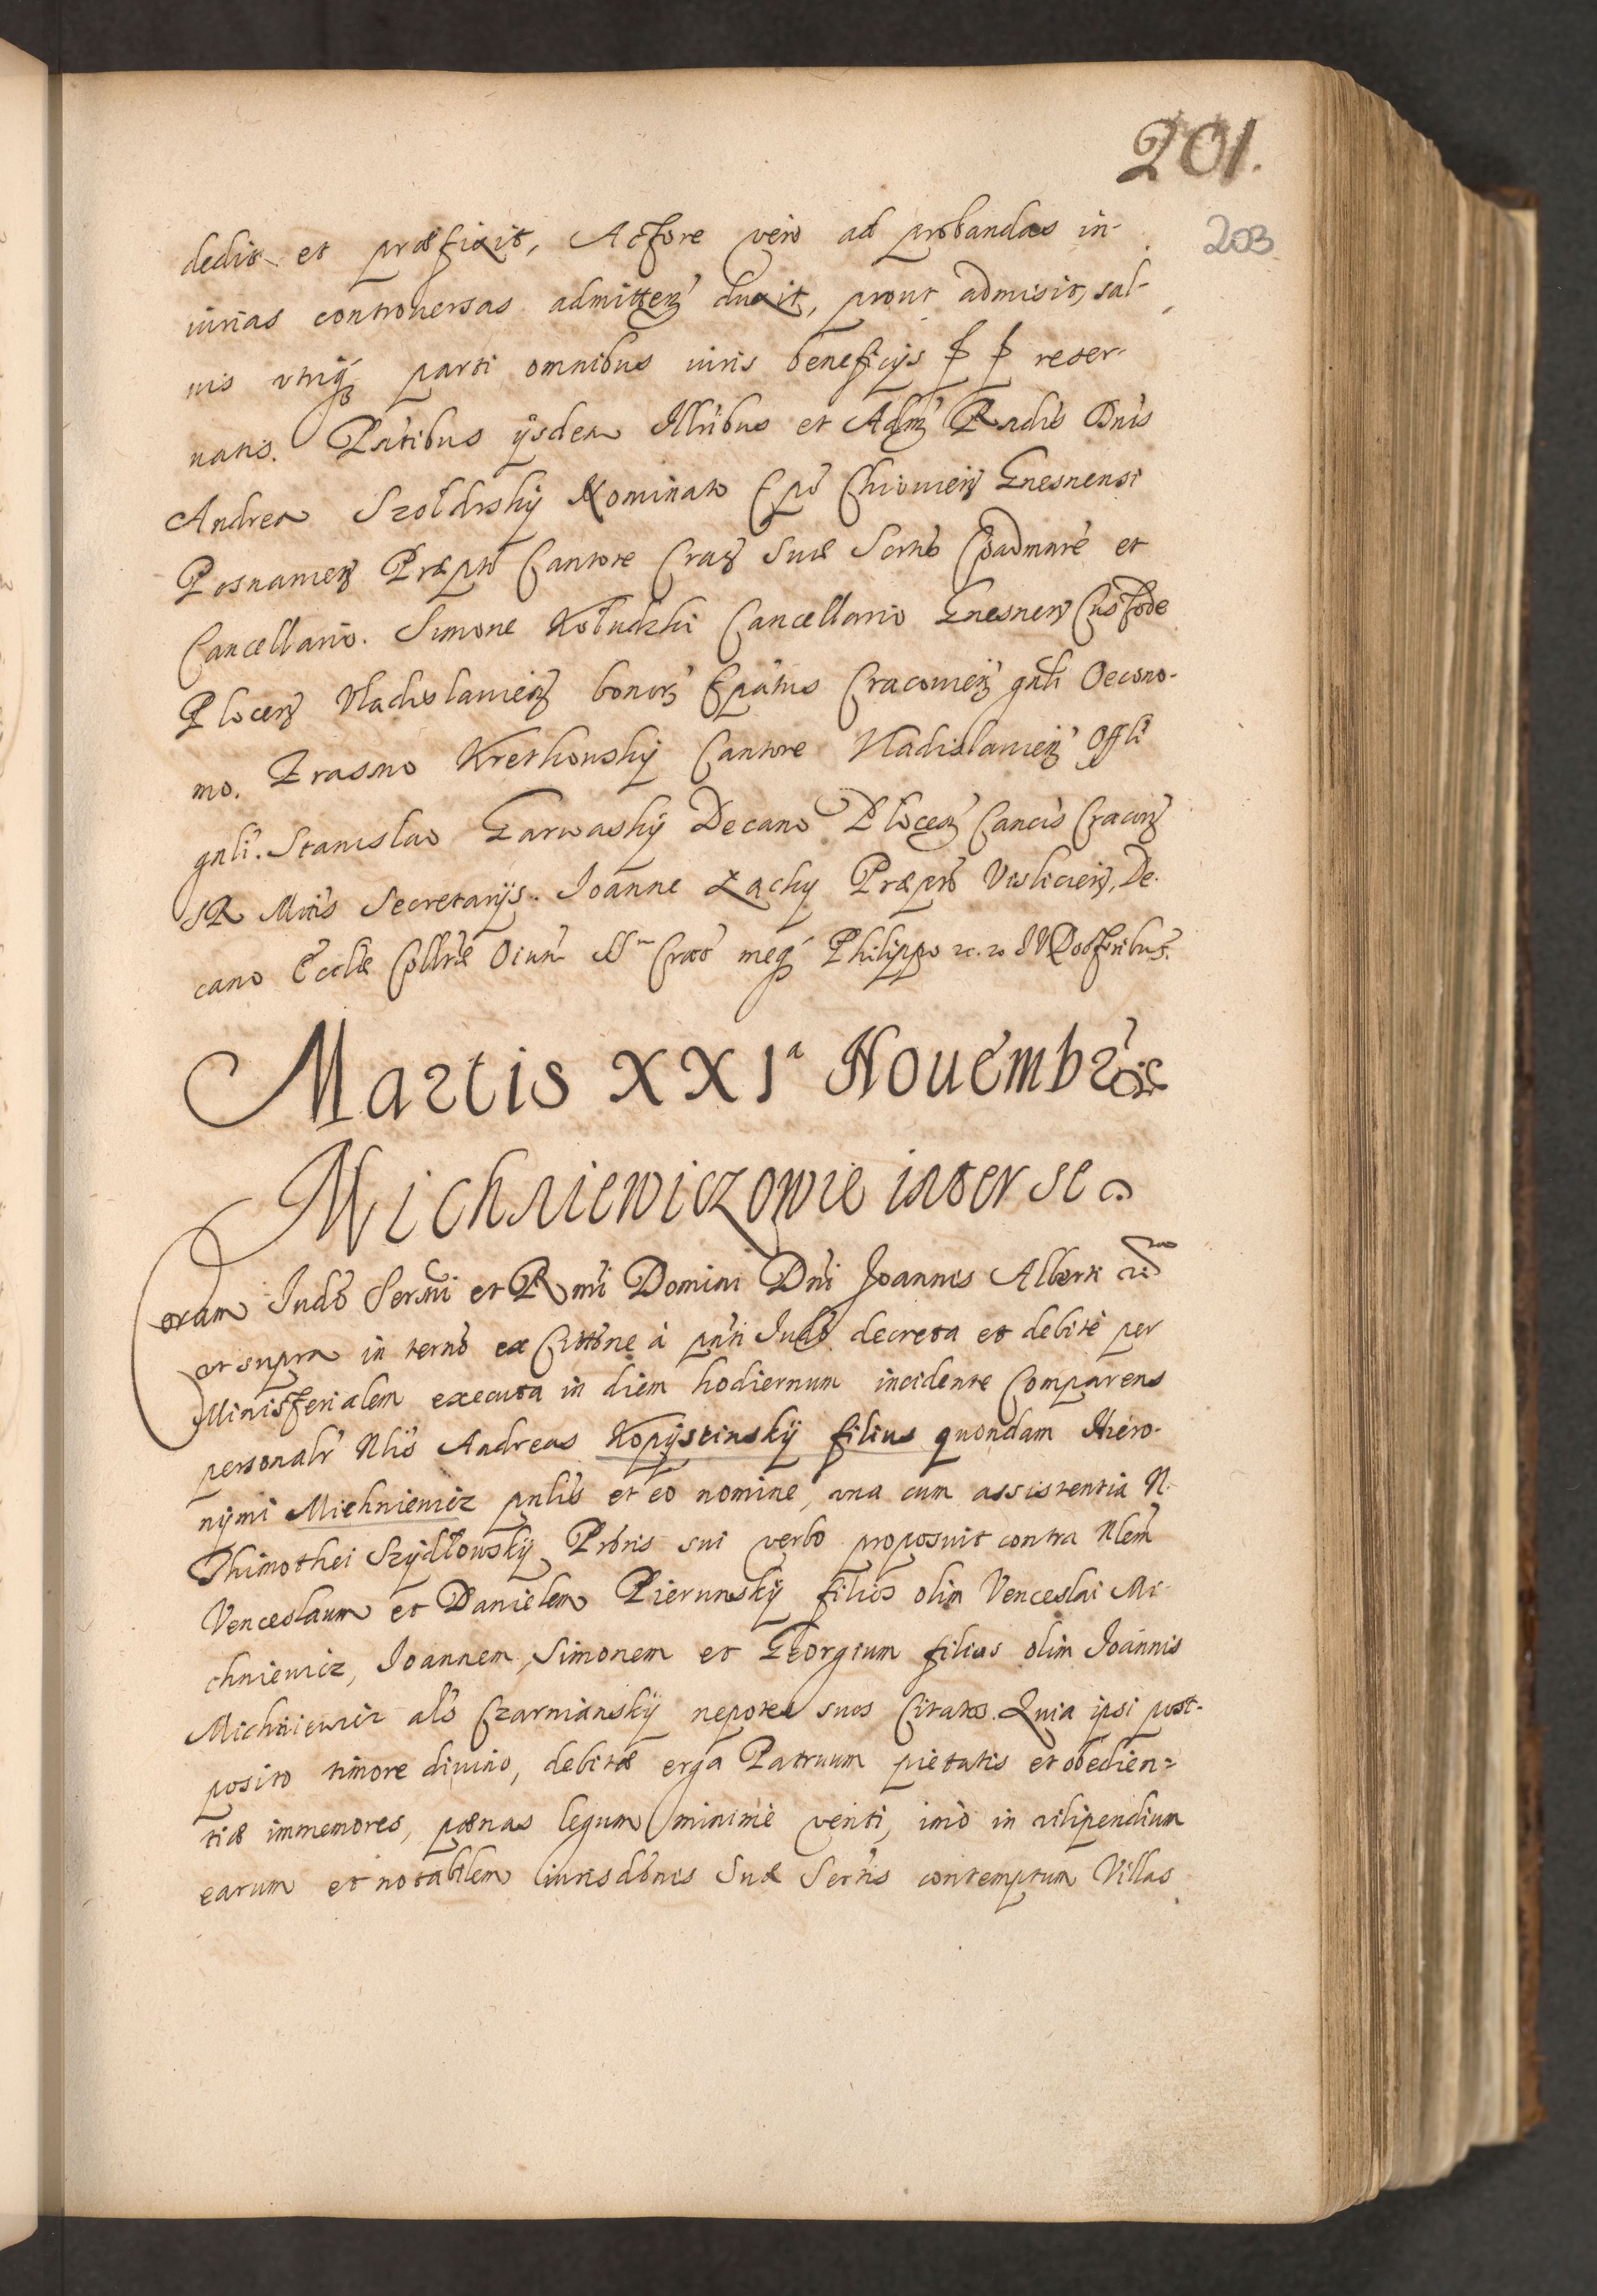 201.
203
dedit et præfixit, Actore vero ad probandas in-
iurias controuersas admitten̄ duxit, prout admisit, sal-
uis vtriq́ parti omnibus iuris beneficijs p p reser-
uatis. Pn̄tibus ijsdem Illr̄ibus et Adm̄ Rn̄dis Dn̄is
Andrea Szołdrskij Nominato Ep̄o Chiouien̄ Gnesnensi
Posnanien̄ Præp̄to Cantore Craē Suæ Sertīs
Cancellario. Simone Kołudzki Cancellario Gnesnen̄ Custode
Plocen̄ Vladislauien̄ bonor̄ Ep̄atus Cracouien̄ gn̄li Oecono-
mo. Erasmo Kretkouskij Cantore Vladislauien̄ Offli
gn̄li. Stanislao Garwaskij Decano Plocen̄ Cancīs Craciēn
SR Mtīs Secretarijs. Joanne Łącky Præp̄to Vislicien̄, De-
cano Eccliæ Collr̄iæ Oiūm Crac̄ meq́ Philippo
Martis XXIa Nouembris
Michniewiczowie inter se
Coram Jud̄o Sermī et Rmī Domini Dn̄i Joannis Alberti
vt supra in termō ex Cittōne à pn̄ti Jud̄o decreta et debitè per
Ministerialem executa in diem hodiernum incidente Comparens
personalr̄ Nl̄is Andreas Kopÿstinskij filius quondam Hiero-
nijmi Michniewicz pnl̄is et eo nomine, vna cum assistentia N.
Thimothei Szÿdłouskij Prōris sui verbo proposuit contra Nlem̄
Venceslaum et Danielem Pierunskij filios olim Venceslai Mi-
chniewicz, Joannem, Simonem et Georgium filios olim Joannis
Michniewicz al̄s Czarnianskij nepotes suos Citatos. Quia ipsi post-
posito timore diuino, debitæ erga Patruum pietatis et obedien-
tiæ immemores, pænas legum minimè veriti, imò in vilipendium
earum et notabilem iurisdōnis Suæ Sertīs contemptum Villas